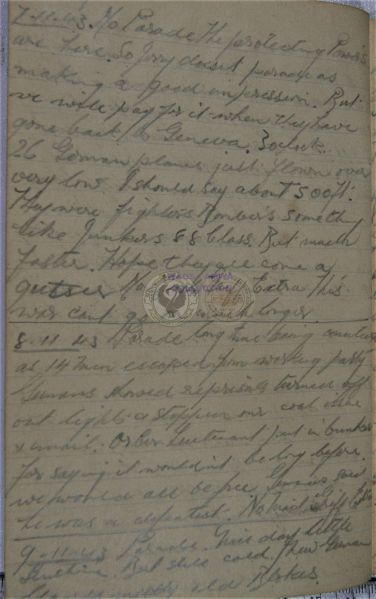 7-11-43. No Parade the protecting Powers
are here. So Jerry doesn't parade as
making a good impression. But
we will pay for it when they have
gone back to Geneva. 3oclock.
26 German planes just flown over
very low. I should say about 500ft.
They were fighters Bombers someth
like Junkers 88 Class. But much
faster. Hope they all come a
gutser Extra this
war cant go much longer.
8-11-43 Parade long time being counted
as 14 men escaped from working party
Germans showed reprisals turned off
out lights & stopped our coal issue
& mail. Ober Lieutenant put in bunker
for saying it wouldn't be long before
we would all be free. Germans said
he was a defeatist. No mail
9-11-43 Parade. nice day little
. But still cold, few German
old Blokes.